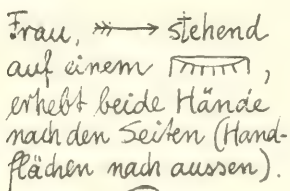 Frau, stehend
auf einem ,
erhebt beide Hände
nach den Seiten (Hand-
flächen nach aussen).